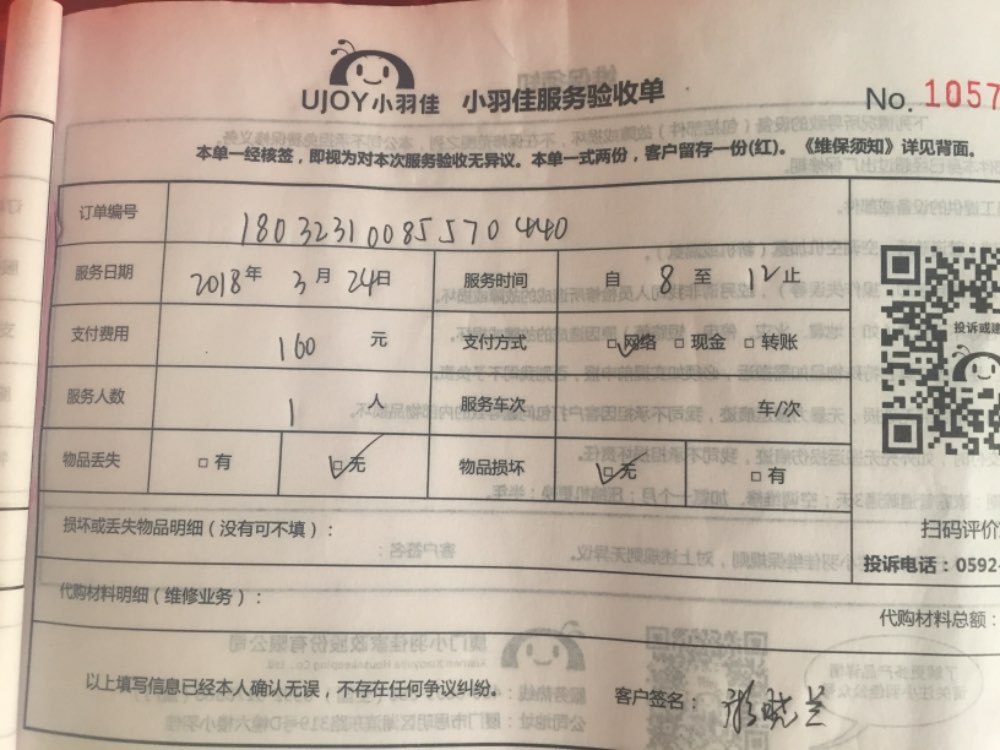 UJOY小羽佳 小羽佳服务验收单
No. 1057
本单一经核签，即视为对本次服务验收无异议。本单一式两份，客户留存一份(红)。《维保须知》详见背面。
订单编号 18032310085570440
服务日期 2018年 3月 24日 服务时间 自 8 至 12 止
支付费用 160 元 支付方式 □网络 □现金 □转账
服务人数 1 人 服务车次 车/次
物品丢失 □有 □无 物品损坏 □无 □有
投诉或建
损坏或丢失物品明细（没有可不填）：
扫码评价
投诉电话：0592-
代购材料明细（维修业务）：
代购材料总额：
以上填写信息已经本人确认无误，不存在任何争议纠纷。
客户签名：